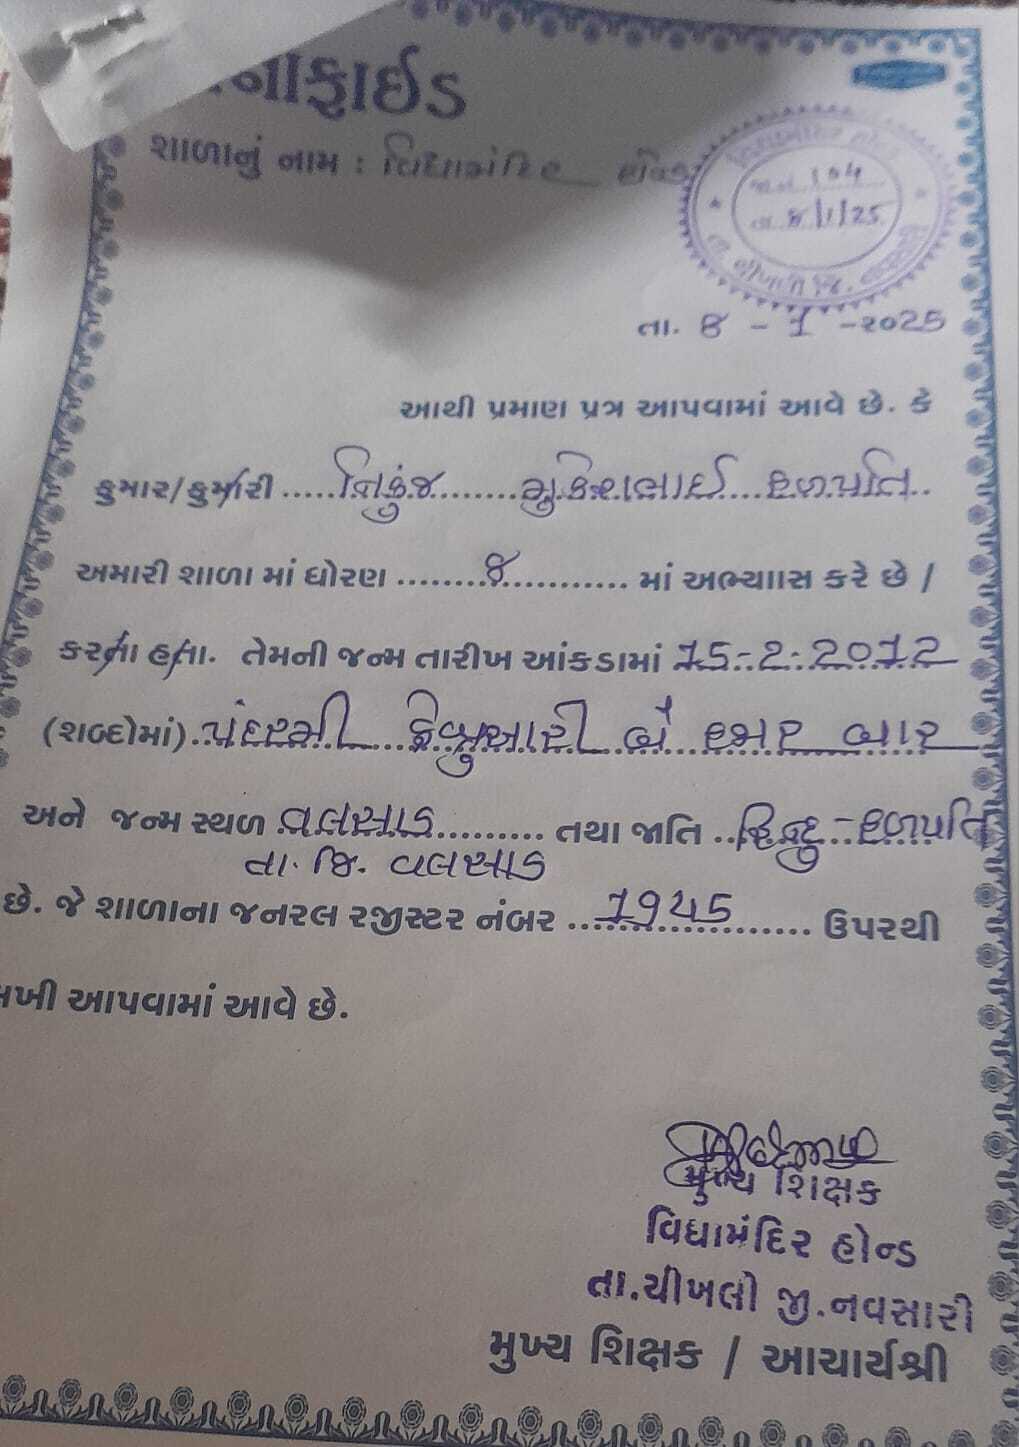 નાફાઈડ
શાળાનું નામ : વિદ્યામંદિર હોન્ડ
જા.નં. 104
તા. 8/1/25
તા. 8 - 1 -૨૦25
આથી પ્રમાણ પત્ર આપવામાં આવે છે. કે
કુમાર/કુમારી .....નિકુંજ........મુકેશભાઈ....હળપતિ..
અમારી શાળા માં ધોરણ ........૪............ માં અભ્યાાસ કરે છે /
કરતા હતા. તેમની જન્મ તારીખ આંકડામાં 15-2-2012
(શબ્દોમાં)..પંદરમી....ફેબ્રુઆરી બે હજાર બાર
અને જન્મ સ્થળ વલસાડ.......... તથા જાતિ ..હિન્દુ-હળપતિ
તા. જિ. વલસાડ
છે. જે શાળાના જનરલ રજીસ્ટર નંબર ...1945........ ઉપરથી
લખી આપવામાં આવે છે.
મુખ્ય શિક્ષક
વિદ્યામંદિર હોન્ડ
તા.ચીખલી જી.નવસારી
મુખ્ય શિક્ષક / આચાર્યશ્રી